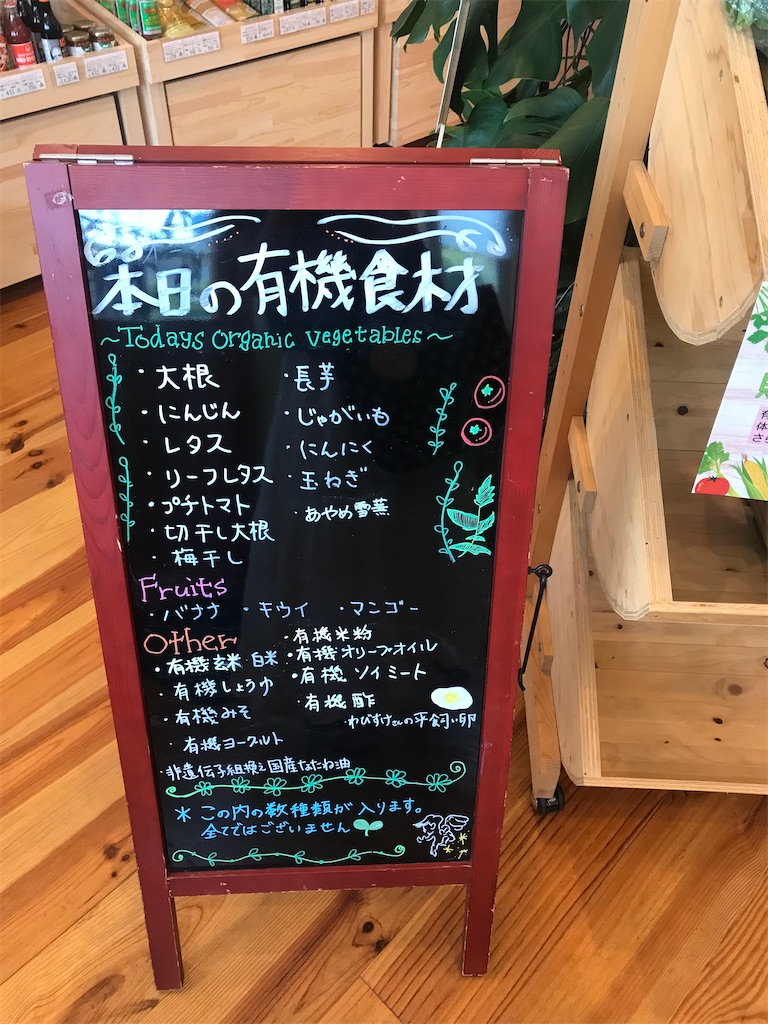 本日の有機食材
~Todays organic vegetables~
・大根
・にんじん
・レタス
・リーフレタス
・プチトマト
・切干し大根
・梅干し
・長芋
・じゃがいも
・にんにく
・玉ねぎ
・あやめ雪蕪
Fruits
・バナナ ・キウイ ・マンゴー
Other
・有機玄米 白米
・有機しょうゆ
・有機みそ
・有機ヨーグルト
・非遺伝子組換え国産なたね油
・有機米粉
・有機オリーブオイル
・有機ソイミート
・有機酢
・わびすけさんの平飼い卵
＊この内の数種類が入ります。
全てではございません